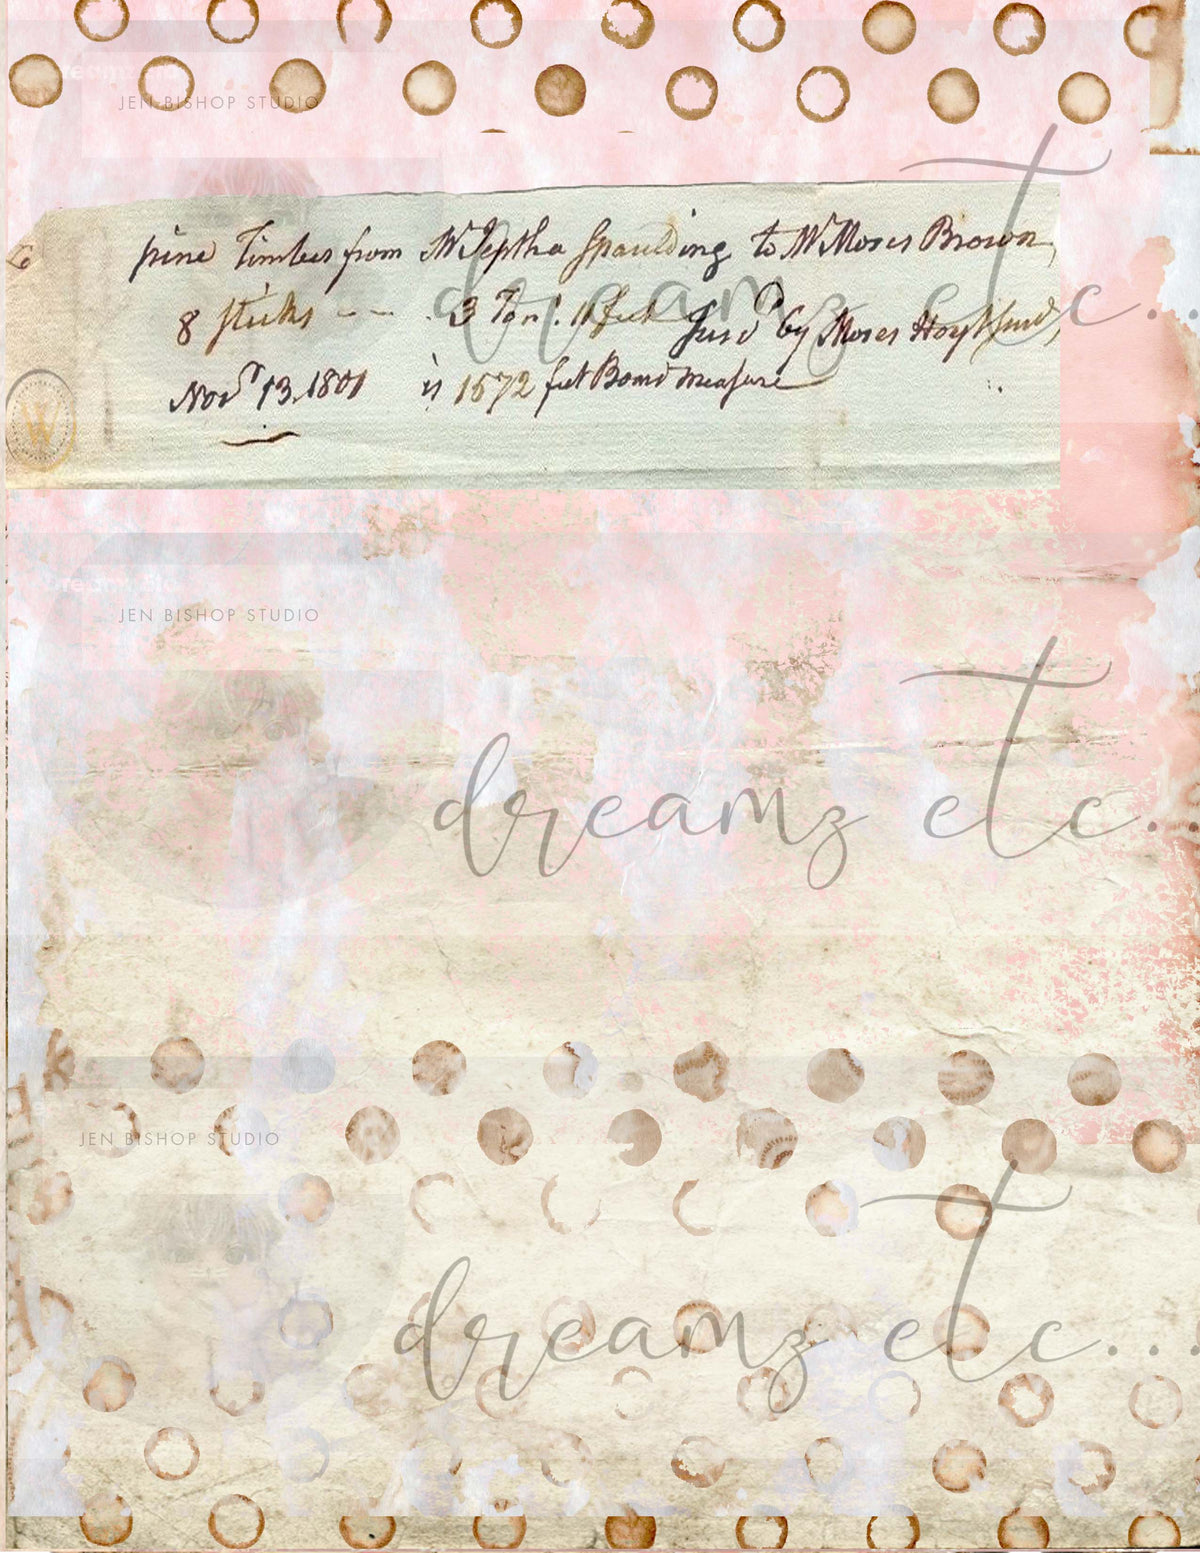 JEN BISHOP STUDIO
pine Timber from Mr Jeptha Spaulding to Mr Moses Brown,
8 sticks -- -- . 3 Ton . 11 feet Survd by Moses Hoyt
Novr 13, 1801 is 1572 feet Board measure
W
dreamz etc...
JEN BISHOP STUDIO
dreamz etc...
JEN BISHOP STUDIO
dreamz etc...